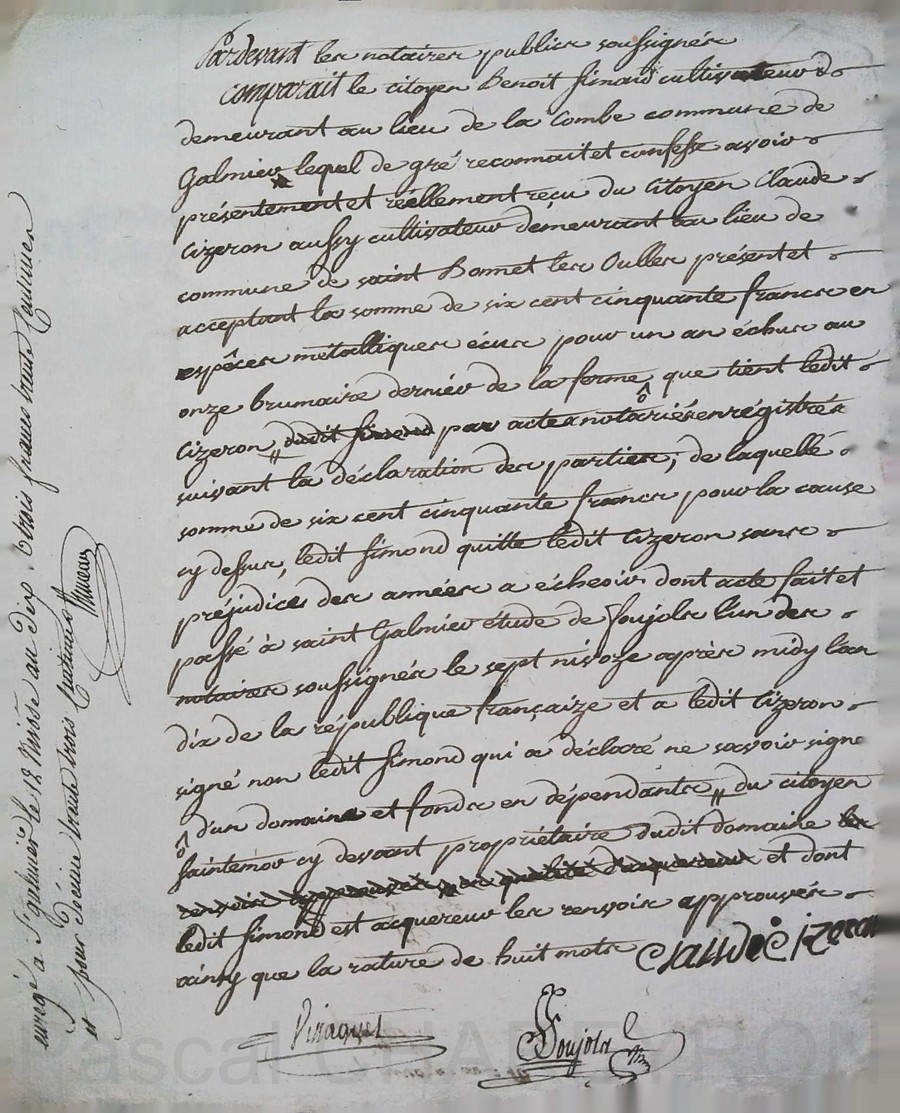 Pardevant les notaires publics soussignés
comparait le citoyen Benoit Simond cultivateur
demeurant au lieu de la Combe commune de
Galmier lequel de gré reconnait et confesse avoir
présentement et réellement reçu du Citoyen Claude
Cizeron aussy cultivateur demeurant au lieu de
commune de saint Bonnet les Oulles présent et
acceptant la somme de six cent cinquante francs en
espêces métalliques écus pour un an échus au
onze brumaire dernier de la ferme que tient ledit
Cizeron dudit Simond par actes notariés enrégistrés
suivant la déclaration des parties; de laquelle
somme de six cent cinquante francs pour la cause
cy dessus, ledit Simond quitte ledit Cizeron sans
préjudices des années a écheoir dont acte fait et
passé à saint Galmier étude de Soujols l'un des
notaires soussignés le sept nivoze après midy l'an
dix de la république françaize et a ledit Cizeron
signé non ledit Simond qui a déclaré ne savoir signé
d'un domaine et fonds en dépendants du citoyen
cy devant propriétaire dudit domaine les
renvois approuvés et dont
ledit Simond est acquereur les renvois approuvés
ainsy que la rature de huit mots Claude Cizeron
Soujols
enregé à St galmier le 12 Nivôse an Dix. trois francs trente Centimes
et pour décime trente trois Centimes
Pascal CHAPEYRON